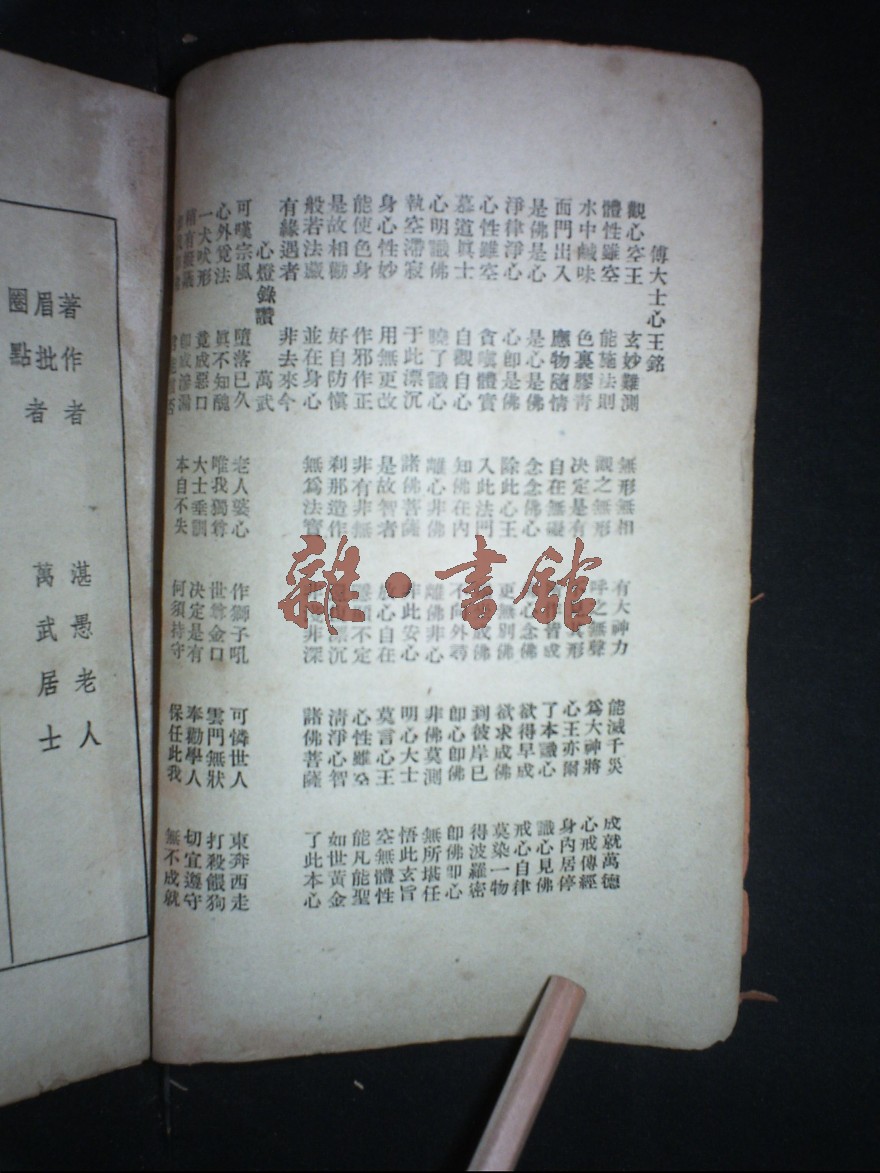 傅大士心王銘
觀心空王　玄妙難測　無形無相　有大神力　能滅千災　成就萬德
體性雖空　能施法則　觀之無形　呼之無聲　爲大神將　心戒傳經
水中鹹味　色裏膠青　決定是有　其形　心王亦爾　身內居停
面門出入　應物隨情　自在無礙　作皆成　了本識心　識心見佛
是佛是心　是心是佛　念念佛心　心念佛　欲得早成　戒心自律
淨律淨心　心卽是佛　除此心王　更無別佛　欲求成佛　莫染一物
心性雖空　貪嗔體實　入此法門　成佛　到彼岸已　得波羅密
慕道眞士　自觀自心　知佛在內　不向外尋　卽心卽佛　卽佛卽心
心明識佛　曉了識心　離心非佛　離佛非心　非佛莫測　無所堪任
執空滯寂　于此漂沉　諸佛菩薩　非此安心　明心大士　悟此玄旨
身心性妙　用無更改　是故智者　放心自在　莫言心王　空無體性
能使色身　作邪作正　非有非無　隱顯不定　心性雖空　能凡能聖
是故相勸　好自防愼　刹那造作　漂沉　清淨心智　如世黃金
般若法藏　並在身心　無爲法寶　非深　諸佛菩薩　了此本心
有緣遇者　非去來今
心燈錄讚　萬武
可嘆宗風　墮落已久　老人婆心　作獅子吼　可憐世人　東奔西走
心外覓法　眞不知醜　唯我獨尊　世尊金口　雲門無狀　打殺餵狗
一犬吠形　竟成惡口　大士垂訓　決定是有　奉勸學人　切宜遵守
有擬議　卽成滲漏　本自不失　何須持守　保任此我　無不成就
著作者　湛愚老人
眉批者
圈點　萬武居士
雜·書館